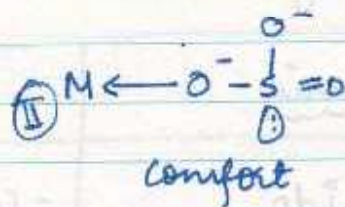 O⁻
(II) M ← O⁻ - S = O
comfort